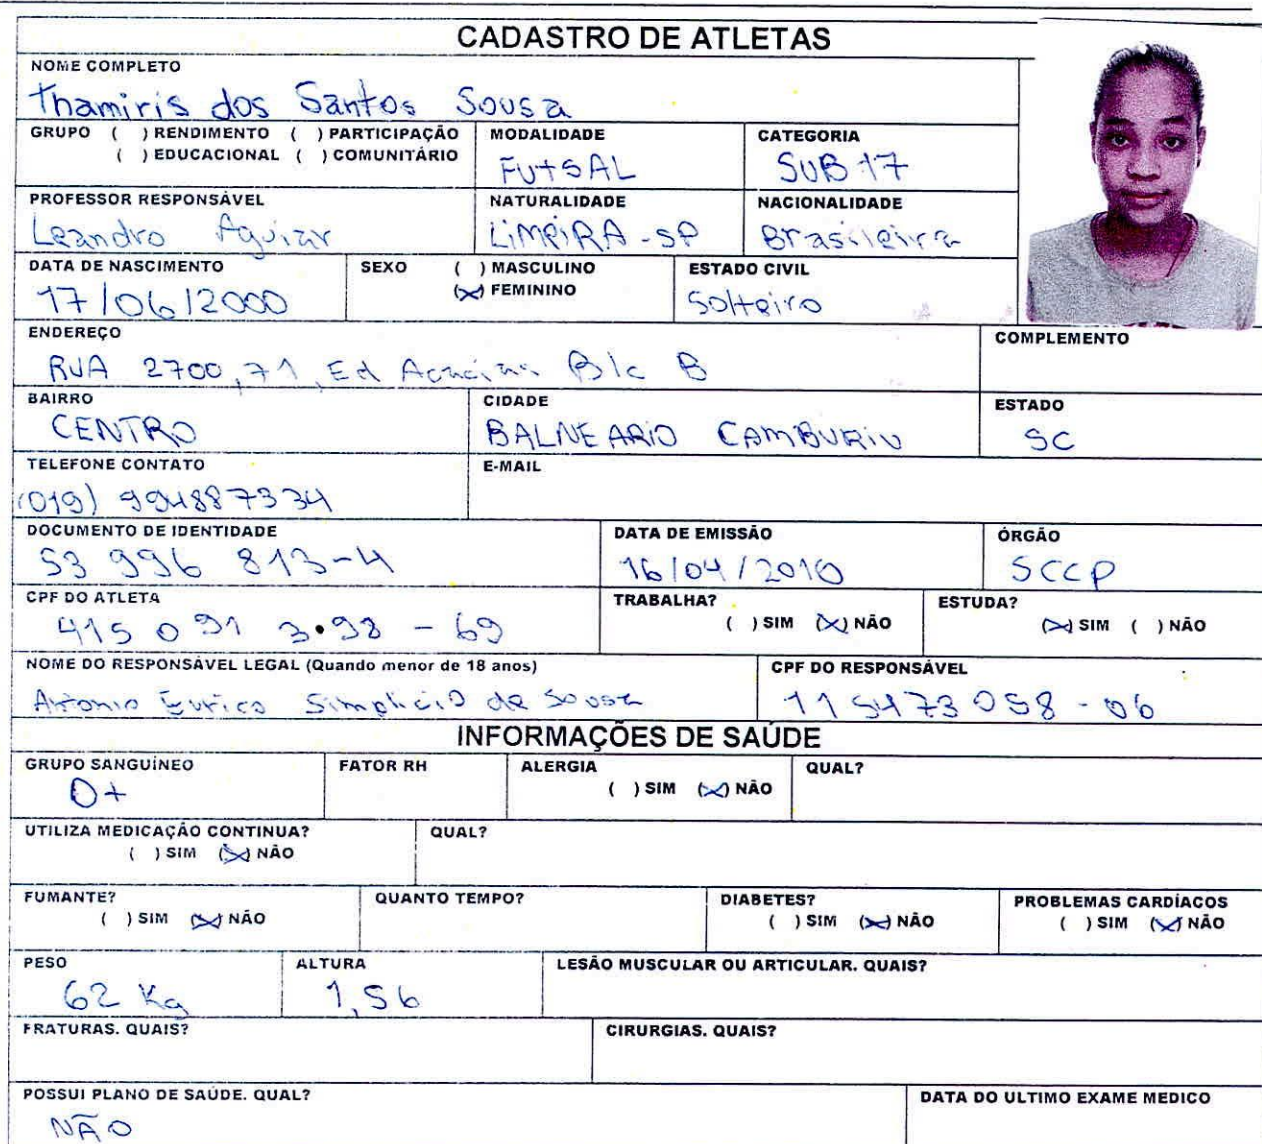 CADASTRO DE ATLETAS
NOME COMPLETO
Thamiris dos Santos Sousa
GRUPO ( ) RENDIMENTO ( ) PARTICIPAÇÃO
( ) EDUCACIONAL ( ) COMUNITÁRIO
MODALIDADE
FUTSAL
CATEGORIA
SUB 17
PROFESSOR RESPONSÁVEL
Leandro Aguiar
NATURALIDADE
LIMEIRA - SP
NACIONALIDADE
Brasileira
DATA DE NASCIMENTO
17/06/2000
SEXO ( ) MASCULINO
(X) FEMININO
ESTADO CIVIL
Solteiro
ENDEREÇO
RUA 2700, 71, Ed Acacias Blc B
COMPLEMENTO
BAIRRO
CENTRO
CIDADE
BALNEARIO CAMBURIU
ESTADO
SC
TELEFONE CONTATO
(019) 994887334
E-MAIL
DOCUMENTO DE IDENTIDADE
53 996 813-4
DATA DE EMISSÃO
16/04/2010
ÓRGÃO
SCCP
CPF DO ATLETA
415 091 3•98 - 69
TRABALHA?
( ) SIM (X) NÃO
ESTUDA?
(X) SIM ( ) NÃO
NOME DO RESPONSÁVEL LEGAL (Quando menor de 18 anos)
Antonio Eurico Simplicio de Sousa
CPF DO RESPONSÁVEL
115473058-06
INFORMAÇÕES DE SAÚDE
GRUPO SANGUÍNEO
O+
FATOR RH
ALERGIA
( ) SIM (X) NÃO
QUAL?
UTILIZA MEDICAÇÃO CONTINUA?
( ) SIM (X) NÃO
QUAL?
FUMANTE?
( ) SIM (X) NÃO
QUANTO TEMPO?
DIABETES?
( ) SIM (X) NÃO
PROBLEMAS CARDÍACOS
( ) SIM (X) NÃO
PESO
62 Kg
ALTURA
1,56
LESÃO MUSCULAR OU ARTICULAR. QUAIS?
FRATURAS. QUAIS?
CIRURGIAS. QUAIS?
POSSUI PLANO DE SAÚDE. QUAL?
NÃO
DATA DO ULTIMO EXAME MEDICO